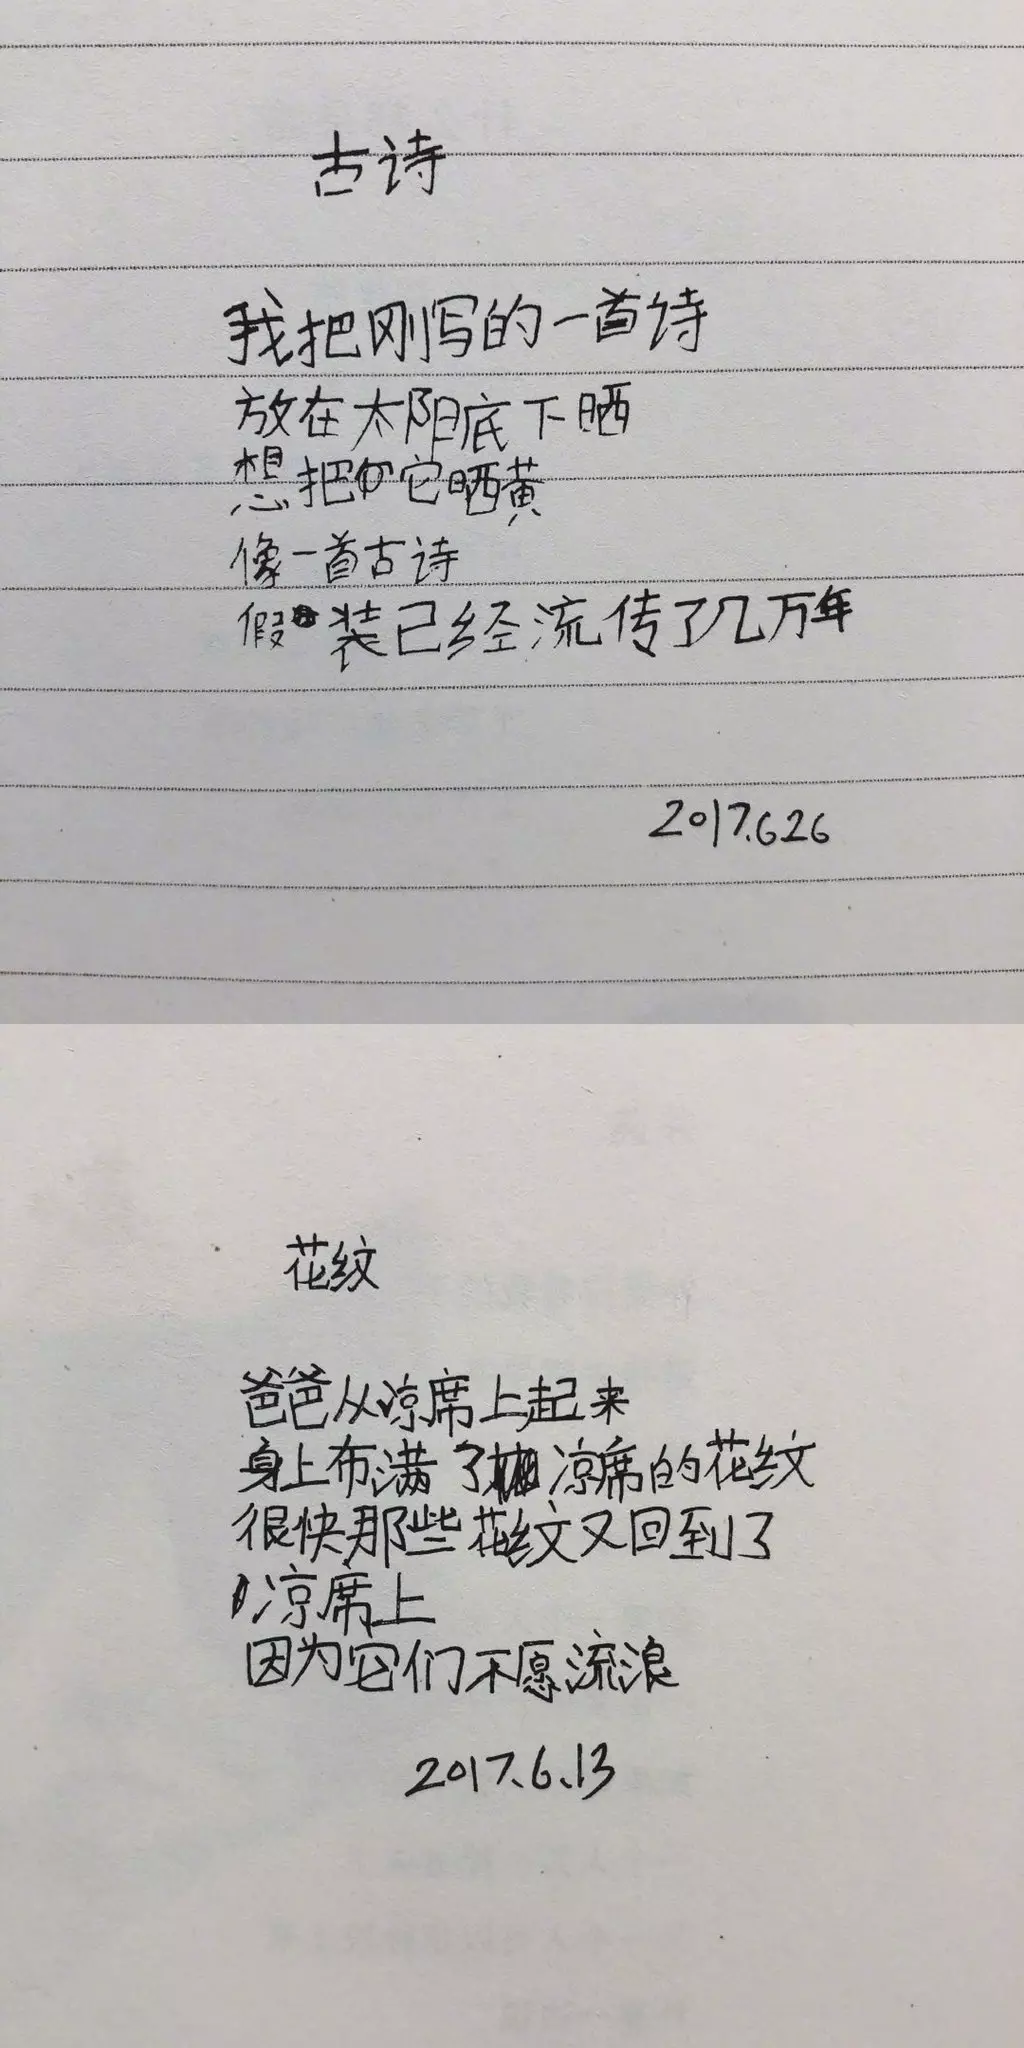 古诗
我把刚写的一首诗
放在太阳底下晒
想把它晒黄
像一首古诗
假装已经流传了几万年
2017.6.26
花纹
爸爸从凉席上起来
身上布满了凉席的花纹
很快那些花纹又回到了
凉席上
因为它们不愿流浪
2017.6.13